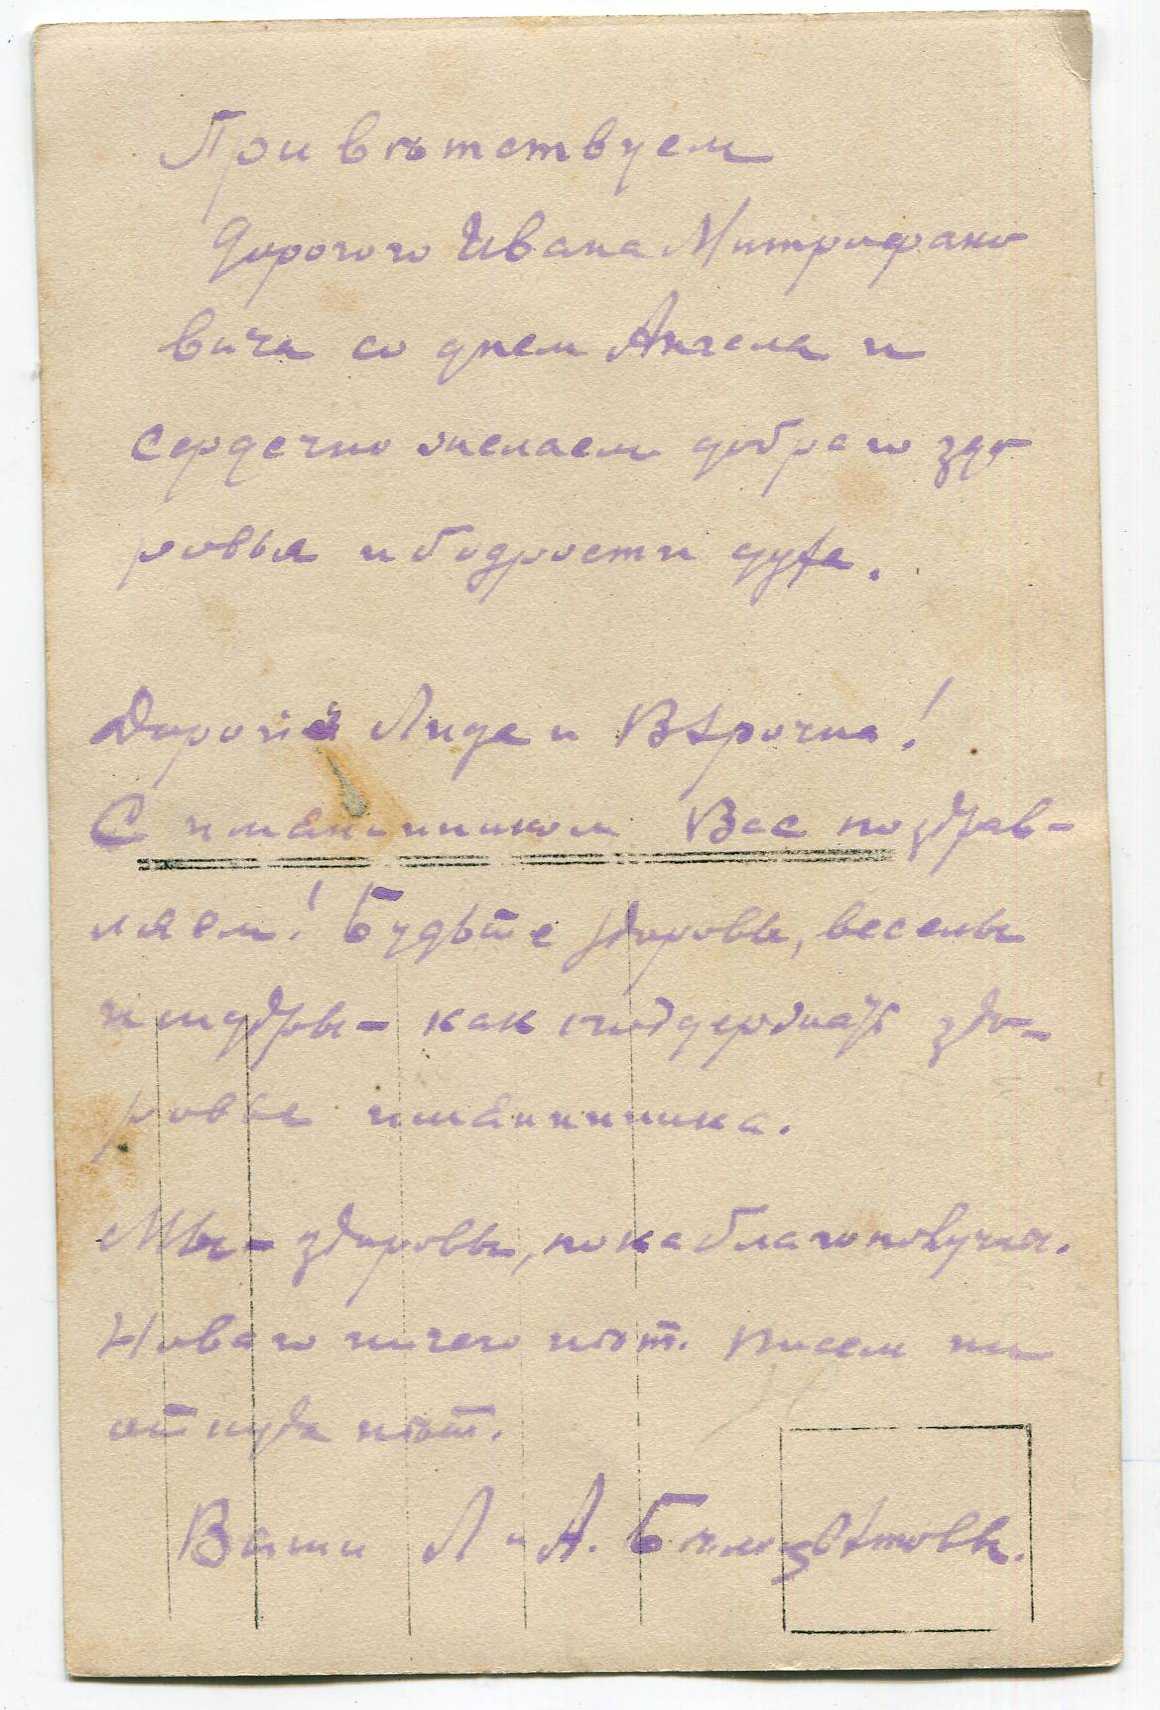 Привѣтствуем
дорогого Ивана Митрофано
вича со днем Ангела и
сердечно желаем добраго здо
ровья и бодрости духа.
Дорогія Лида и Вѣрочка!
С имянинником Вас поздрав-
ляем! Будьте здоровы, веселы
и мудры - как поддержать здо-
ровье имянинника.
Мы - здоровы, пока благополучны.
Новаго ничего нѣт. Писем ни
откуда нѣт.
Ваши Л и А.